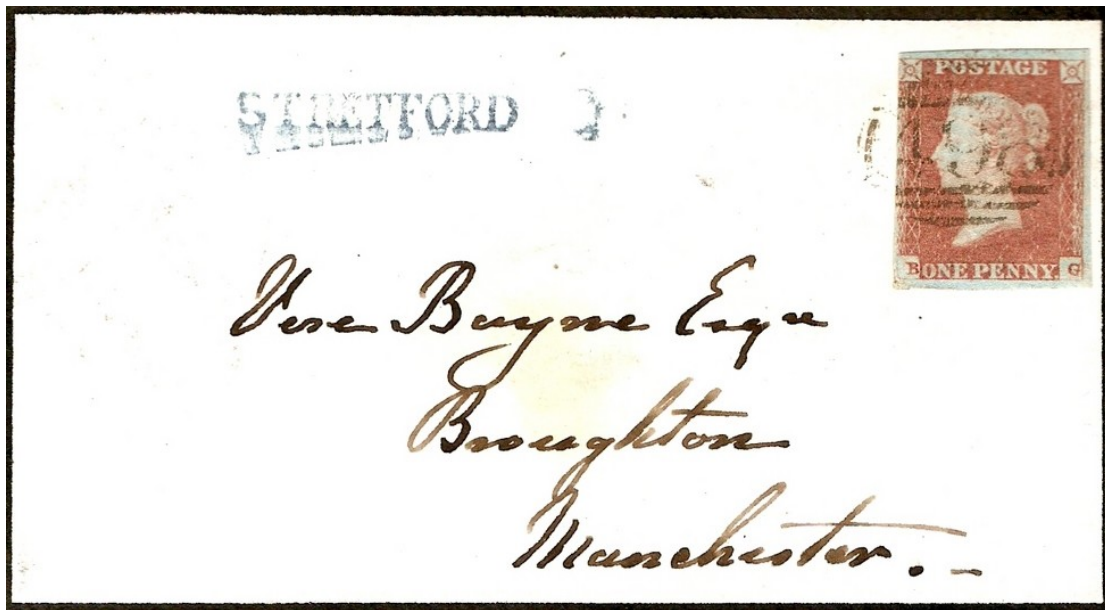 STRETFORD
POSTAGE
B ONE PENNY G
Vere Bayne Esqre
Broughton
Manchester.